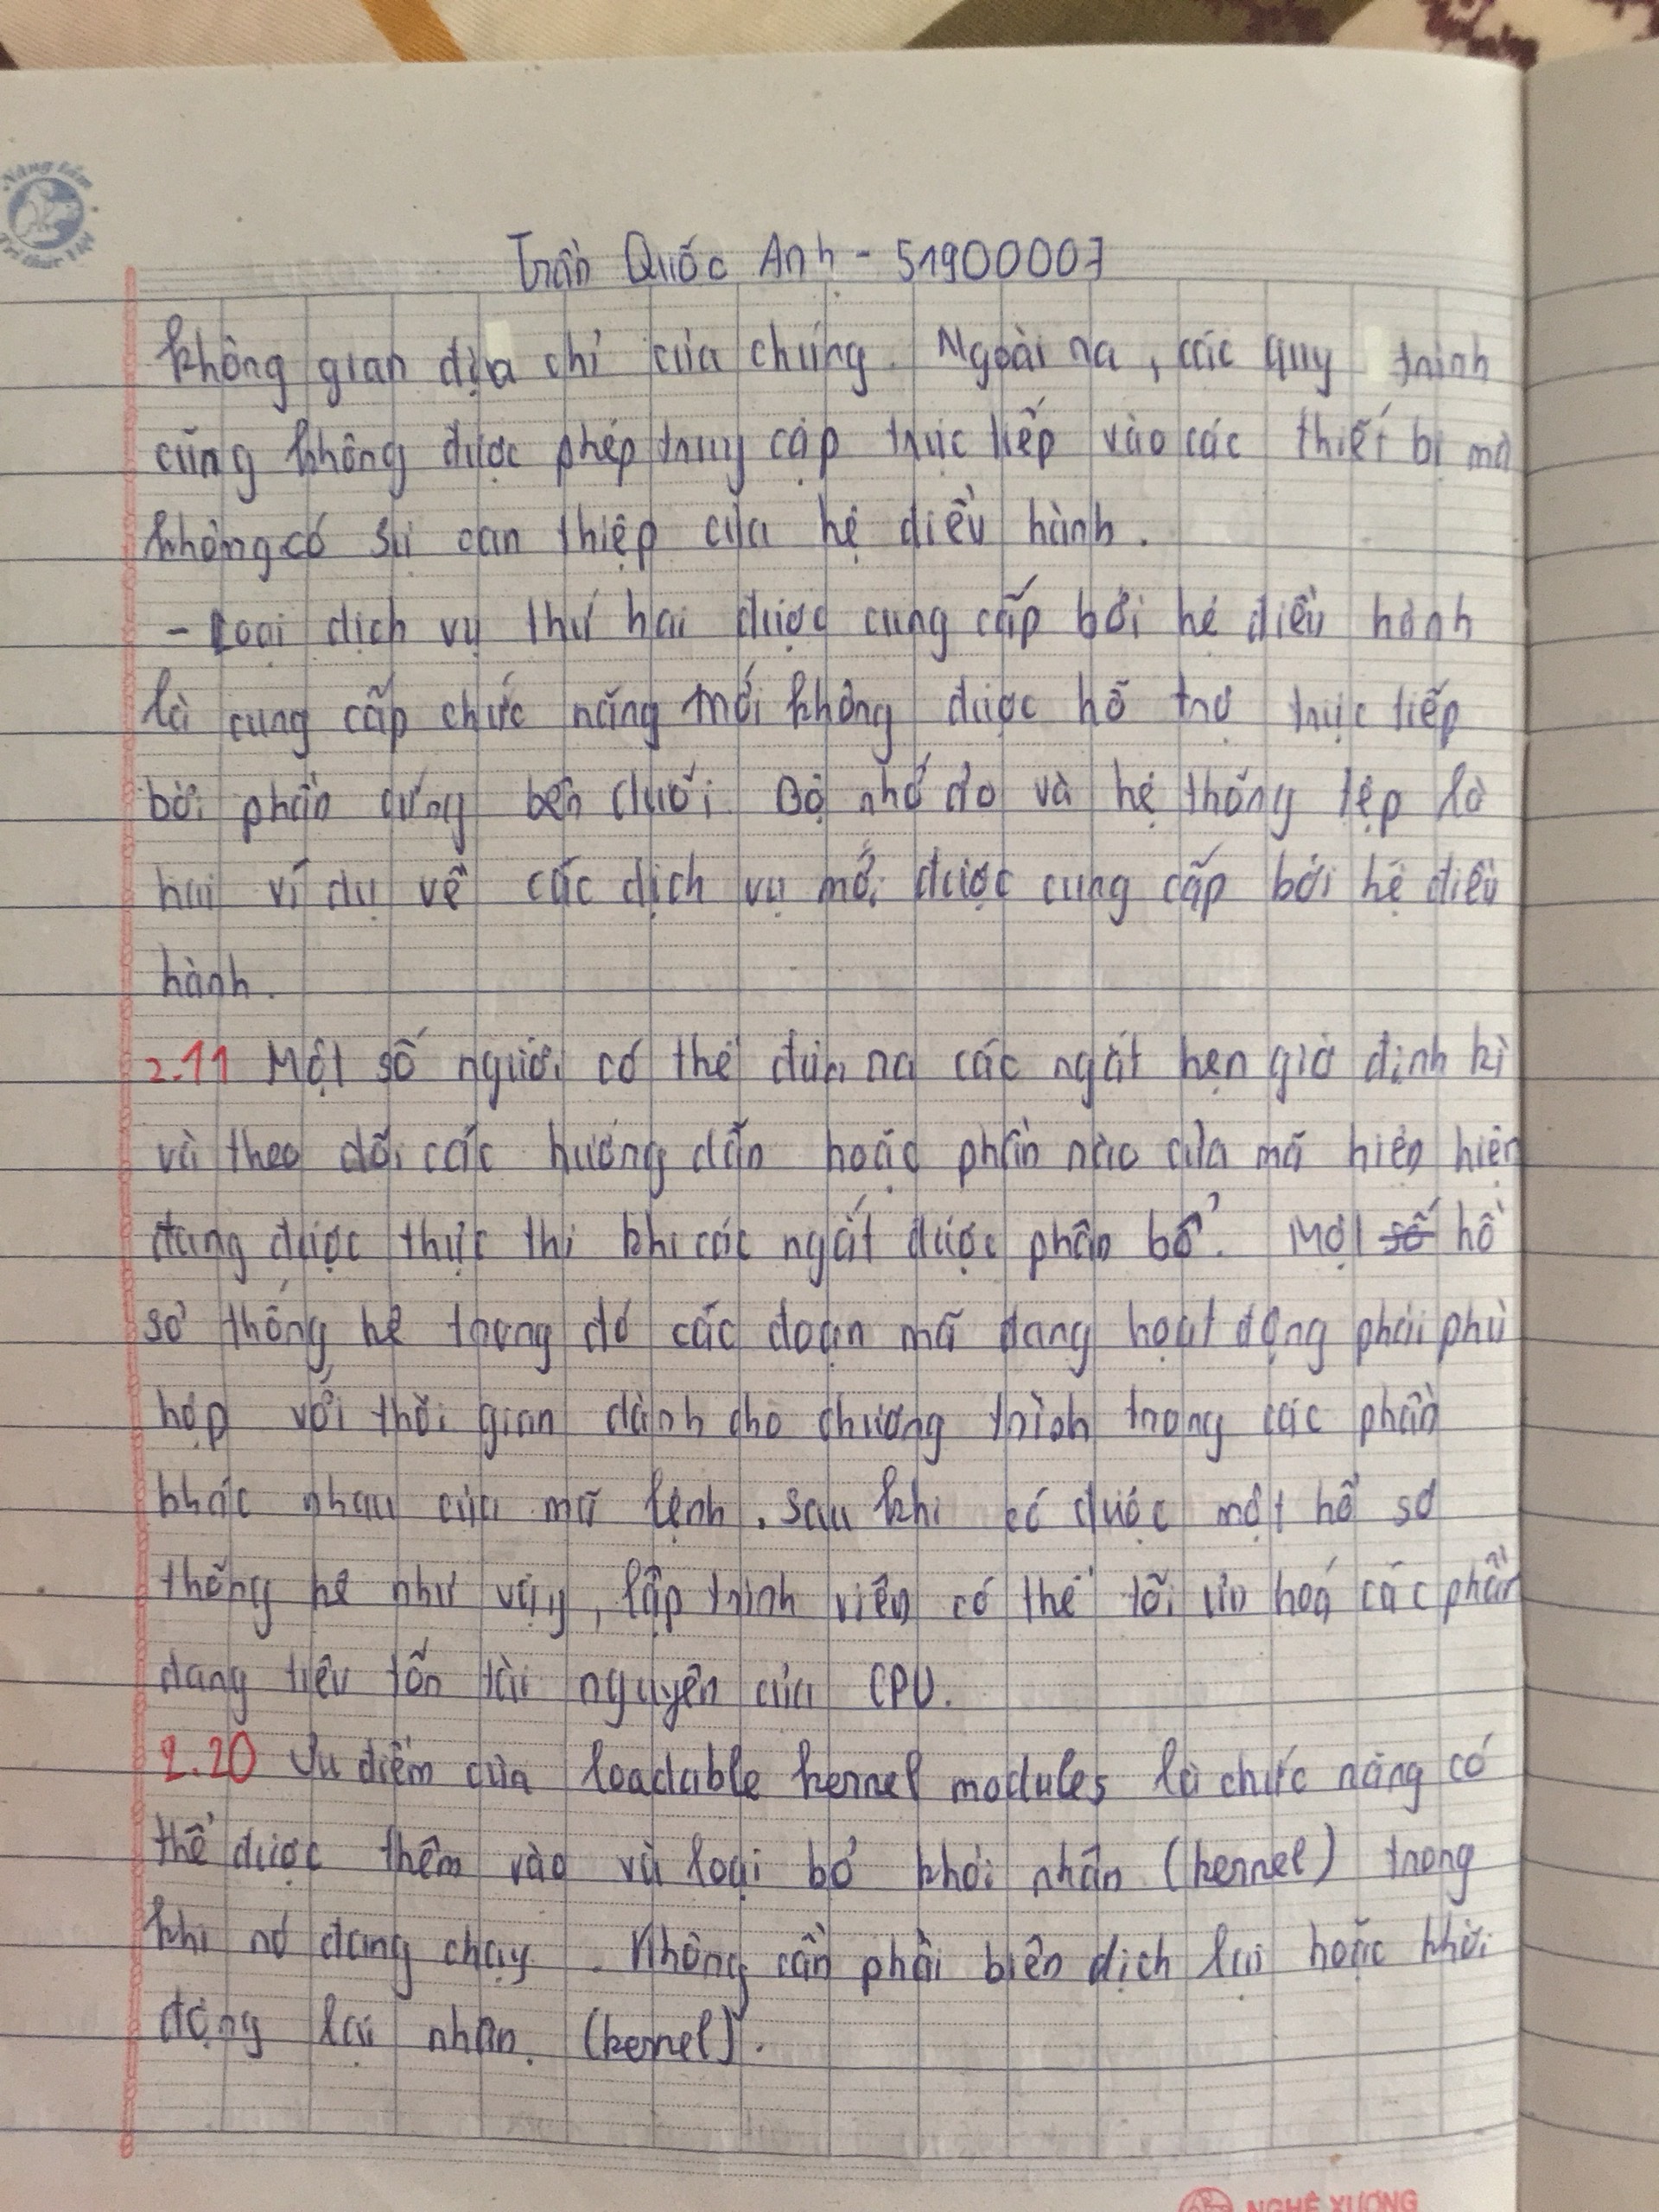 Nâng tầm
Tri thức Việt
Trần Quốc Anh - 51900007
không gian địa chỉ của chúng. Ngoài ra, các quy trình
cũng không được phép truy cập trực tiếp vào các thiết bị mà
không có sự can thiệp của hệ điều hành.
- Loại dịch vụ thứ hai được cung cấp bởi hệ điều hành
là cung cấp chức năng mới không được hỗ trợ trực tiếp
bởi phần cứng bên dưới. Bộ nhớ ảo và hệ thống tệp là
hai ví dụ về các dịch vụ mới được cung cấp bởi hệ điều
hành.
2.11 Một số người có thể đưa ra các ngắt hẹn giờ định kì
và theo dõi các hướng dẫn hoặc phần nào của mã hiện hiện
đang được thực thi khi các ngắt được phân bổ. Một số hồ
sơ thống kê trong đó các đoạn mã đang hoạt động phải phù
hợp với thời gian dành cho chương trình trong các phần
khác nhau của mã lệnh. Sau khi có được một hồ sơ
thống kê như vậy, lập trình viên có thể tối ưu hoá các phần
đang tiêu tốn tài nguyên của CPU.
2.20 Ưu điểm của loadable kernel modules là chức năng có
thể được thêm vào và loại bỏ khỏi nhân (kernel) trong
khi nó đang chạy. Không cần phải biên dịch lại hoặc khởi
động lại nhân. (kernel).
NGHÊ XƯƠNG